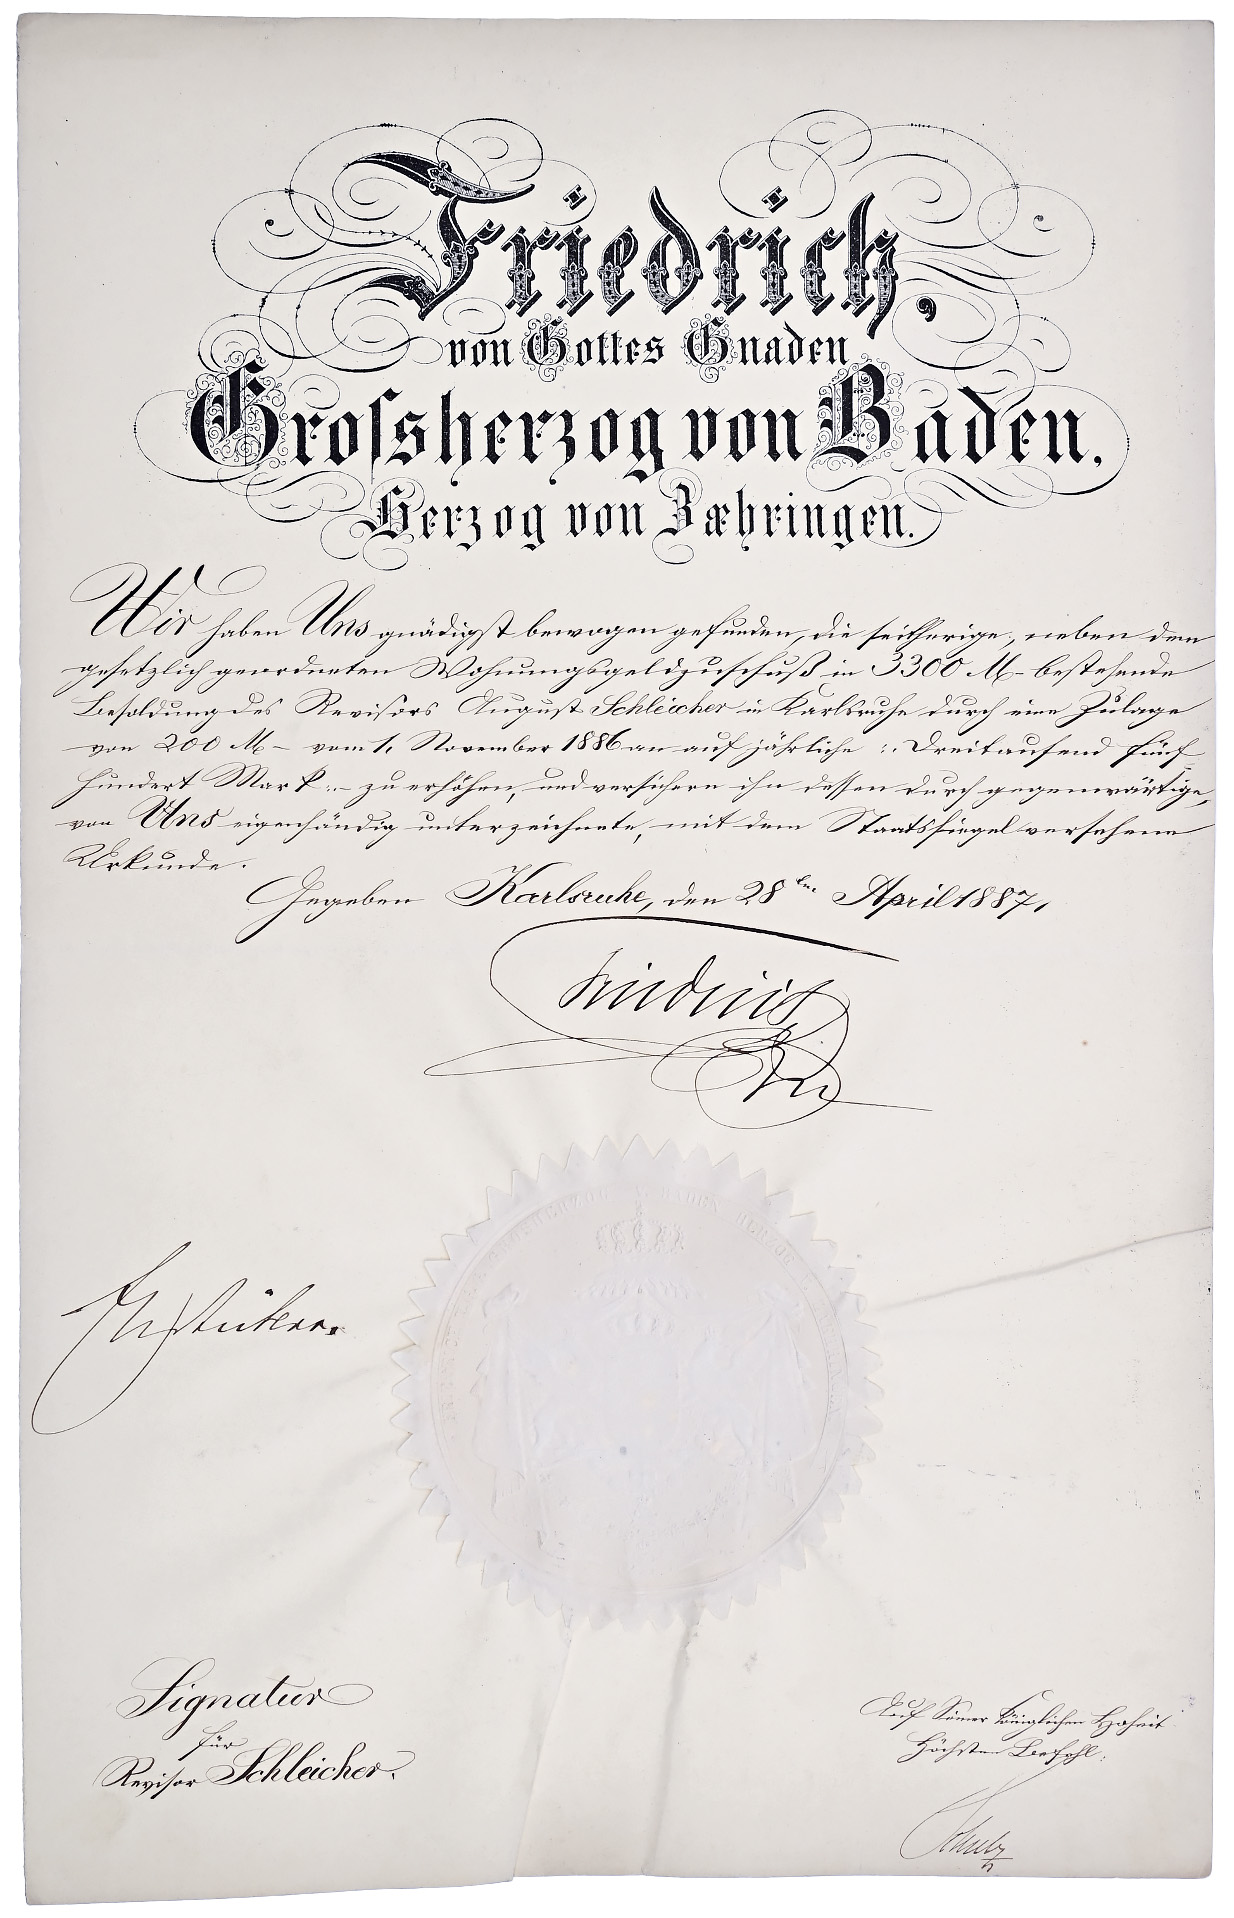 Friedrich,
von Gottes Gnaden
Grossherzog von Baden,
Herzog von Zæhringen.
Wir haben Uns gnädigst bewogen gefunden, die seitherige, neben dem
gesetzlich geordneten Wohnungsgeldzuschuß in 3300 M – bestehende
Besoldung des Revisors August Schleicher in Karlsruhe durch eine Zulage
von 200 M – vom 1. November 1886 an auf jährliche :. Dreitausend fünf-
hundert Mark :. – zu erhöhen, und versichern ihn dessen durch gegenwärtige,
von Uns eigenhändig unterzeichnete, mit dem Staatssiegel versehene
Urkunde.
Gegeben Karlsruhe, den 28ten April 1887.
Friedrich
Signatur
für
Revisor Schleicher.
Auf Seiner Königlichen Hoheit
Höchsten Befehl: